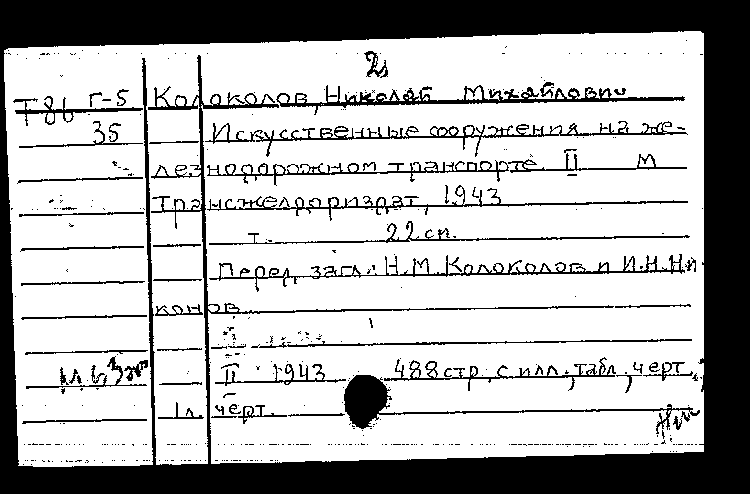 2
Т86 Г-5 Колоколов, Николай Михайлович
35 Искусственные сооружения на же-
лезнодорожном транспорте. II М
Трансжелдориздат, 1943
т. 22 см.
Перед загл.: Н.М. Колоколов и И.Н. Ни-
конов
II 1943 488 стр. с илл.; табл.; черт.;
1 л. черт.